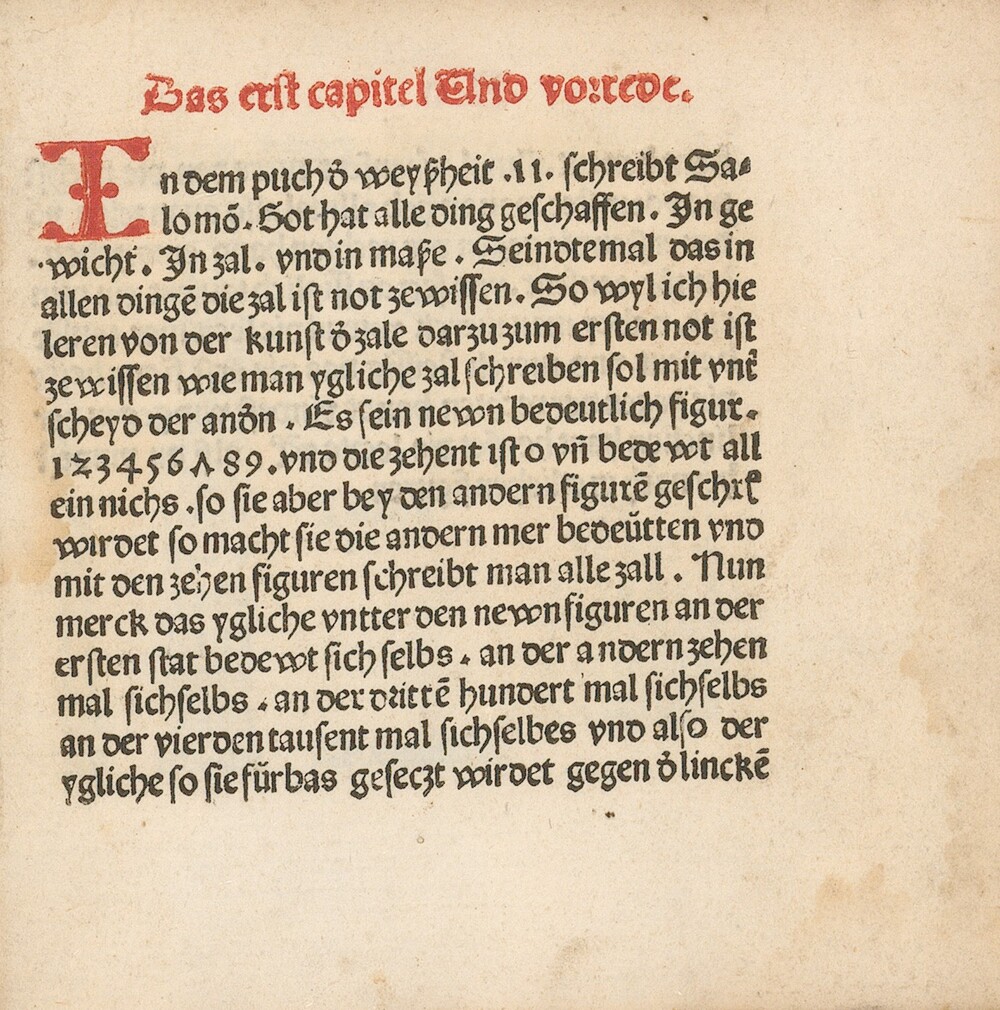 Das erst capitel Und vorrede.
In dem puch d̛ weyſzheit .11. ſchreibt Sa⸗
lomō. Got hat alle ding geſchaffen. In ge
wicht. In zal. vnd in maſze. Seindtemal das in
allen dingē die zal iſt not zewiſſen. So wyl ich hie
leren von der kunſt d̛ zale darzu zum erſten not iſt
zewiſſen wie man ygliche zal ſchreiben ſol mit vnt̄
ſcheyd der andn̄. Es ſein newn bedeutlich figur.
123456Λ89. vnd die zehent iſt 0 vn̄ bedewt all
ein nichs. ſo ſie aber bey den andern figurē geſchrē
wirdet ſo macht ſie die andern mer bedeŭtten vnd
mit den zehen figuren ſchreibt man alle zall. Nun
merck das ygliche vntter den newn figuren an der
erſten ſtat bedewt ſich ſelbs. an der andern zehen
mal ſichſelbs. an der drittē hundert mal ſichſelbs
an der vierden tauſent mal ſichſelbes vnd alſo der
ygliche ſo ſie fŭrbas geſeczt wirdet gegen d̛ linckē